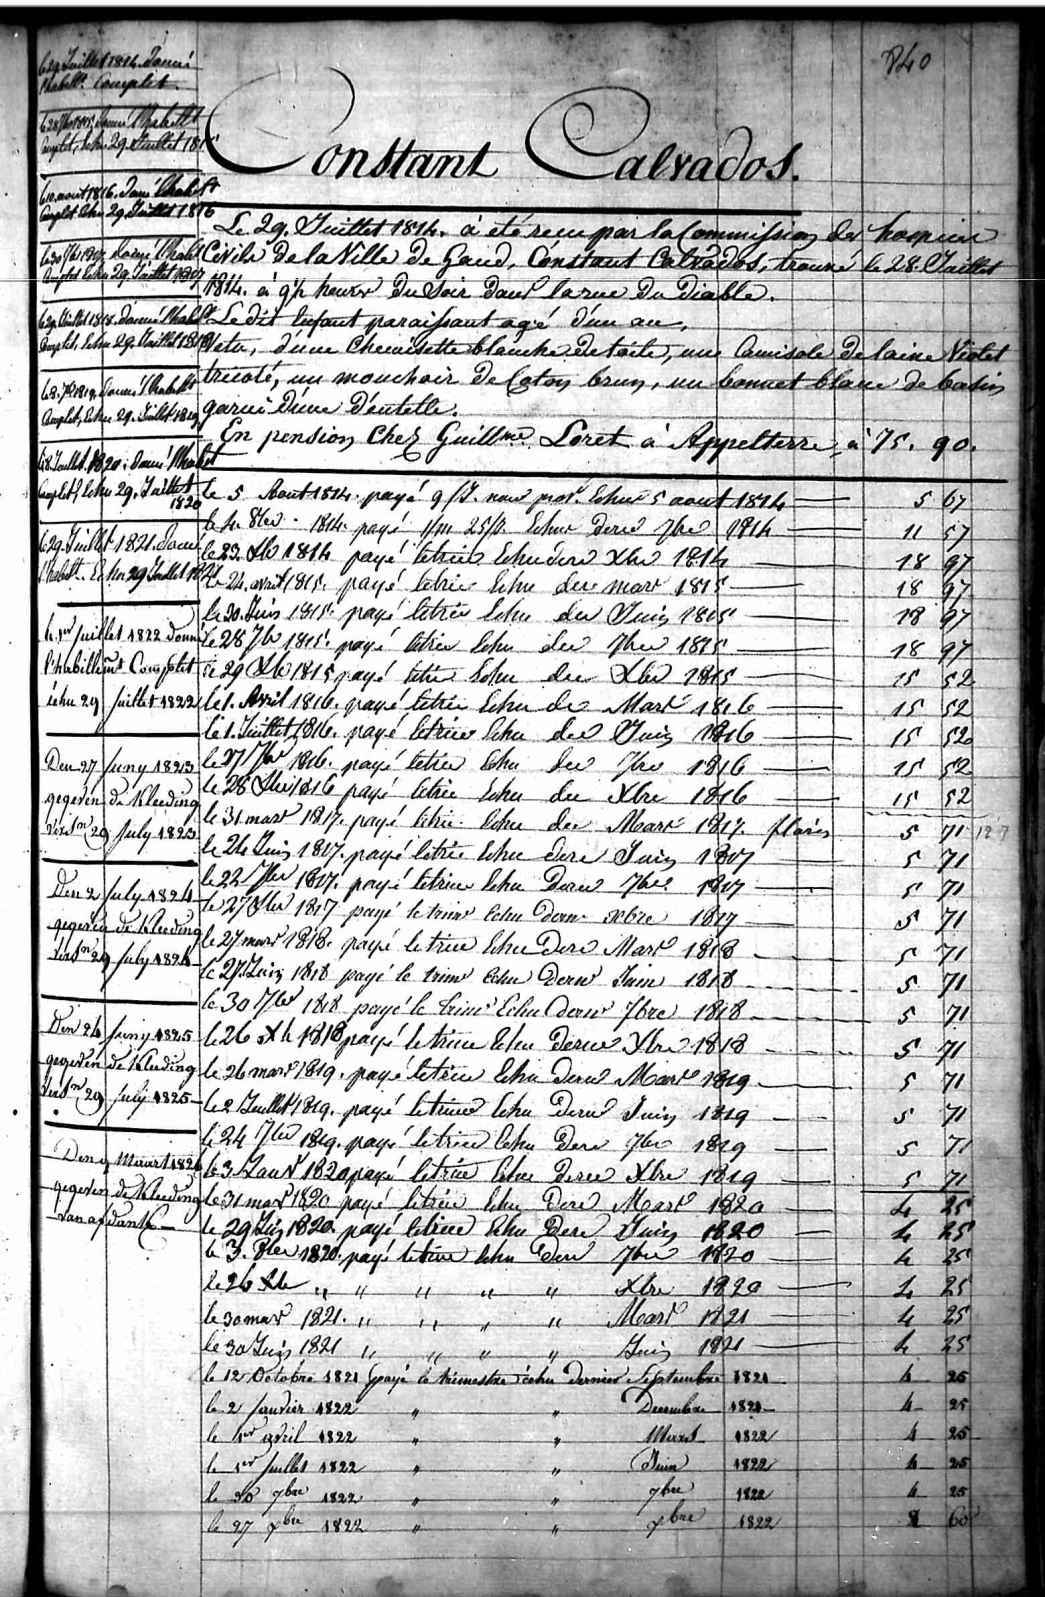 840
Constant Calvados.
Le 29. Juillet 1814. à été recu par la Commission des hospices
Civils de la Ville de Gand, Constant Calvados, trouvé le 28. Juillet
1814. à 9½ heures du Soir dans la rue du Diable.
Le dit Enfant paraissant agé d'un an,
Vetu, d'une Chemisette blanche de toile, une Camisole de laine Violet
tricoté, un mouchoir de Coton brun, un bonnet blanc de basin
garni d'une Dentelle.
En pension Chez Guillme Loret à Appelterre, à 75. 90.
le 29 Juillet 1814. Donné
l'habillt Complet.
le 28 7bre 1815. Donné l'habillt
Complet, Echu 29. Juillet 1815
aout 1816. Donné l'habillt
Complet Echu 29. Juillet 1816
le 30 7bre 1817. Donné l'habillt
Complet Echu 29. Juillet 1817
le 29 Juillet 1818. donné l'habillt
Complet, Echu 29. Juillet 1818
le 2. 1819. Donné l'habillt
Complet, Echu 29. Juillet 1819
le 8 Juillet 1820. Donné l'habillt
Complet, Echu 29. Juillet
1820
le 29. Juillet 1821. Donné
l'habillt. Echu 29 Juillet 1821
le 1er Juillet 1822 donné
l'habillemt Complet
échu 29 Juillet 1822
Den 27 Juny 1823
gegeven de Kleeding
versn 29 July 1823
Den 2 July 1824
gegeven de Kleeding
versn 29 July 1824
Den 24 Juny 1825
gegeven de Kleeding
versn 29 July 1825
Den 9 Maart 1826
gegeven de Kleeding
van afdank
le 5 Aout 1814. payé 9/J. nour prov. Echu 5 aout 1814 5 67
le 4. 8bre 1814. payé 1/m 25/J. Echu dere 7bre 1814 11 57
le 23. Xbre 1814 payé letrie Echu dere Xbre 1814 18 97
le 24. avril 1815. payé letrie Echu der mars 1815 18 97
le 30. Juin 1815. payé letrie Echu der Juin 1815 18 97
le 28 7bre 1815. payé letrie Echu der 7bre 1815 18 97
le 29 Xbre 1815 payé letrie Echu der Xbre 1815 15 52
le 1. Avril 1816. payé letrie Echu de Mars 1816 15 52
le 1. Juillet 1816. payé letrie Echu der Juin 1816 15 52
le 27 7bre 1816. payé letrie Echu der 7bre 1816 15 52
le 28 Xbre 1816 payé letrie Echu der Xbre 1816 15 52
le 31 mars 1817. payé letrie Echu der Mars 1817. florins 5 71
le 24 Juin 1817. payé letrie Echu dere Juin 1817 5 71
le 22 7bre 1817. payé letrim Echu Dern 7bre 1817 5 71
le 27 Xbre 1817 payé le trim Echu Dern xbre 1817 5 71
le 27 mars 1818. payé le trim Echu Dere Mars 1818 5 71
le 27. Juin 1818 payé le trim Echu Dern Juin 1818 5 71
le 30 7bre 1818 payé le trim Echu Dern 7bre 1818 5 71
le 26 Xb 1818 payé le trim Echu Derne Xbre 1818 5 71
le 26 mars 1819. payé letrim Echu Dern Mars 1819 5 71
le 2 Juillet 1819. payé letrim Echu Dern Juin 1819 5 71
le 24 7bre 1819. payé letrim Echu Dere 7bre 1819 5 71
le 3 Janvr 1820 payé letrim Echu Derne Xbre 1819 5 71
le 31 mars 1820 payé letrim Echu Dere Mars 1820 4 25
le 29 Juin 1820. payé letrim Echu Dere Juin 1820 4 25
le 3. 8bre 1820. payé letrim Echu Dern 7bre 1820 4 25
le 26 Xb " " " " " Xbre 1820 4 25
le 30 mars 1821. " " " " Mars 1821 4 25
le 30 Juin 1821 " " " " Juin 1821 4 25
le 12 Octobre 1821 payé le trimestre échu dernier Septembre 1821 4 25
le 2 Janvier 1822 " " Decembre 1821 4 25
le 1er avril 1822 " " Mars 1822 4 25
le 1er Juillet 1822 " " Juin 1822 4 25
le 30 7bre 1822 " " 7bre 1822 4 25
le 27 xbre 1822 " " xbre 1822 60